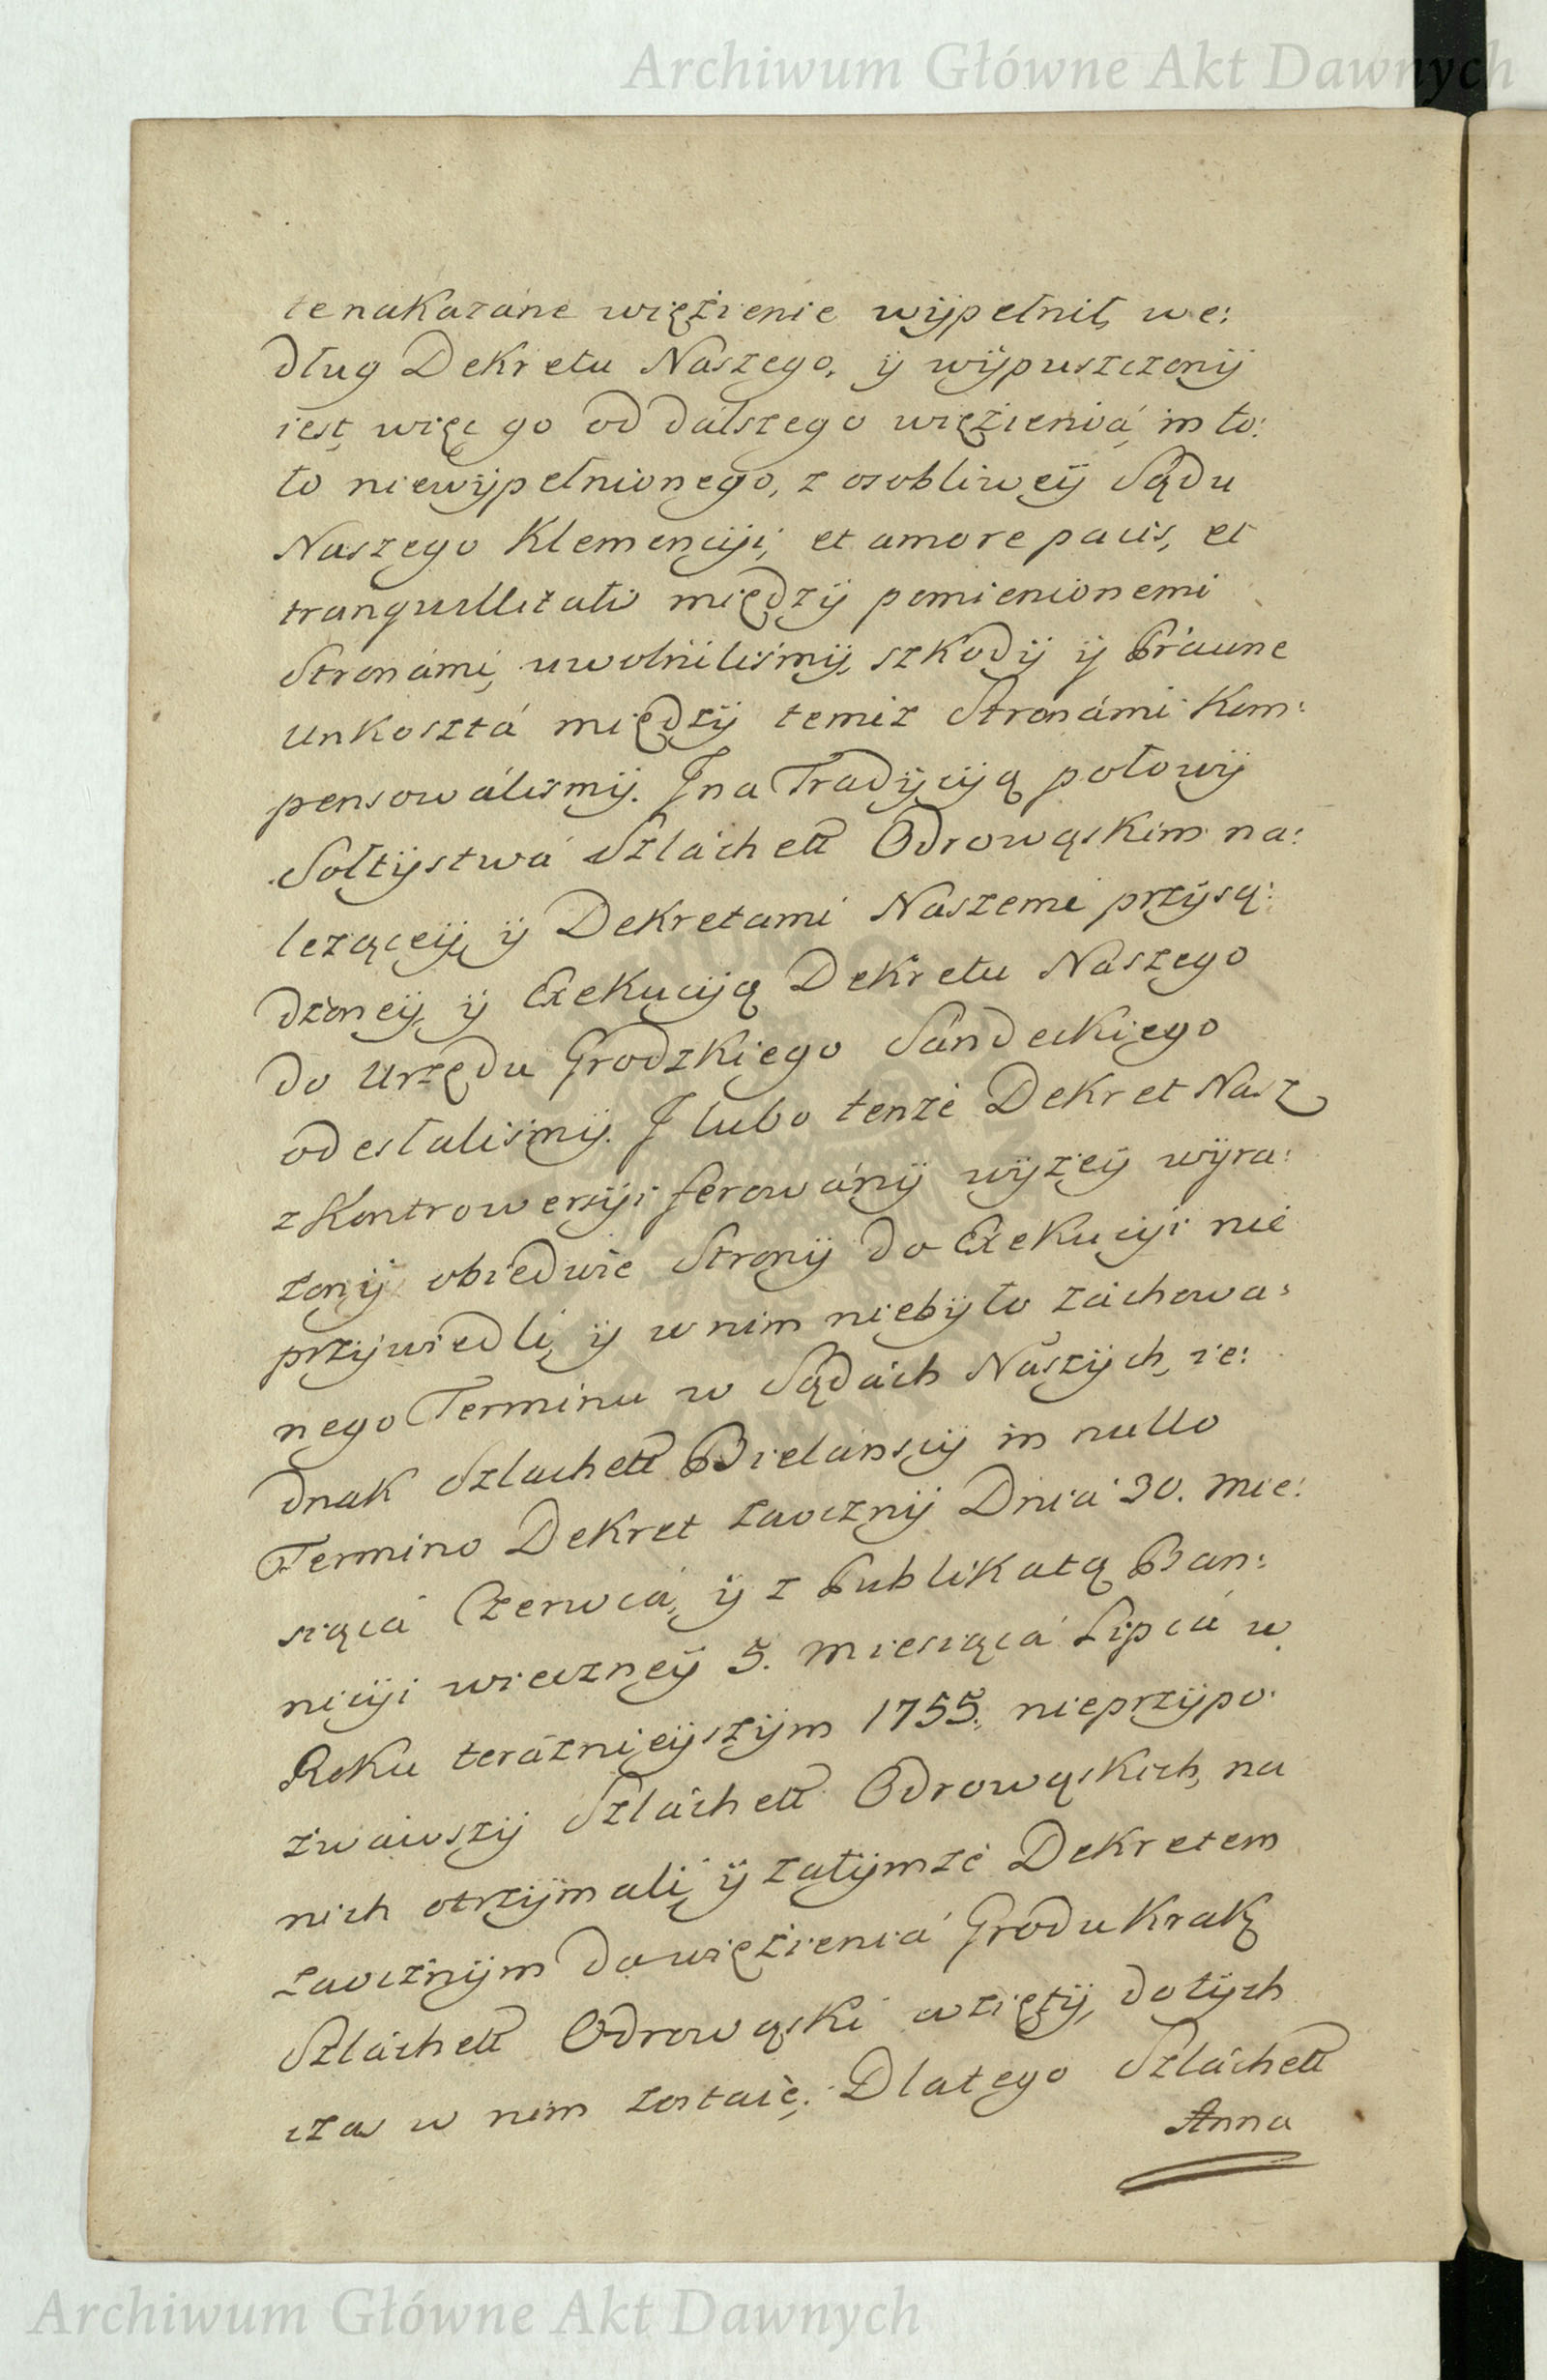 Archiwum Główne Akt Dawnych
te nakazáne więźienie wÿpełnił, we:
dług Dekretu Naszego, ÿ wÿpuszczonÿ
iest, więc go od dálszego więźieniá, in to:
to niewÿpełnionego, z osobliweÿ Sądu
Naszego Klemencÿi, et amore pacis, et
tranquillitatis międzÿ pomienionemi
Stronámi, uwolniliśmÿ, szkodÿ ÿ Práwne
Unkosztá międzÿ temiż Stronámi kom:
pensowáliśmÿ. I na Tradÿcÿą połowÿ
Sołtÿstwá Szláchett Odrowąskim na:
leżąceÿ, ÿ Dekretami Naszemi przÿsą:
dzoneÿ, ÿ Exekucÿą Dekretu Nászego
do Urzędu Grodzkiego Sandeckiego
odesłaliśmÿ. I lubo tenże Dekret Nasz
z Kontrowersÿi ferowánÿ wÿżeÿ wÿra:
żonÿ obiedwie Stronÿ do Exekucÿi nie
przÿwiedli, ÿ w nim niebÿło záchowa:
nego Terminu w Sądách Nászÿch, ie:
dnak Szlachett Bielánscÿ in nullo
Termino Dekret zaocznÿ Dniá 30. Mie:
siącá Czerwcá, ÿ z Publikatą Ban:
nicÿi wieczneÿ 5. Miesiącá Lipcá w
Roku teráznieÿszÿm 1755. nieprzÿpo:
zwáwszÿ Szláchett Odrowąskich, na
nich otrzÿmali, ÿ zatÿmże Dekretem
zaocznÿm do więźieniá Grodu Krak
Szláchett Odrowąski wzietÿ, dotÿch
czas w nim zostaie. Dlatego Szláchett
Anna
Archiwum Główne Akt Dawnych